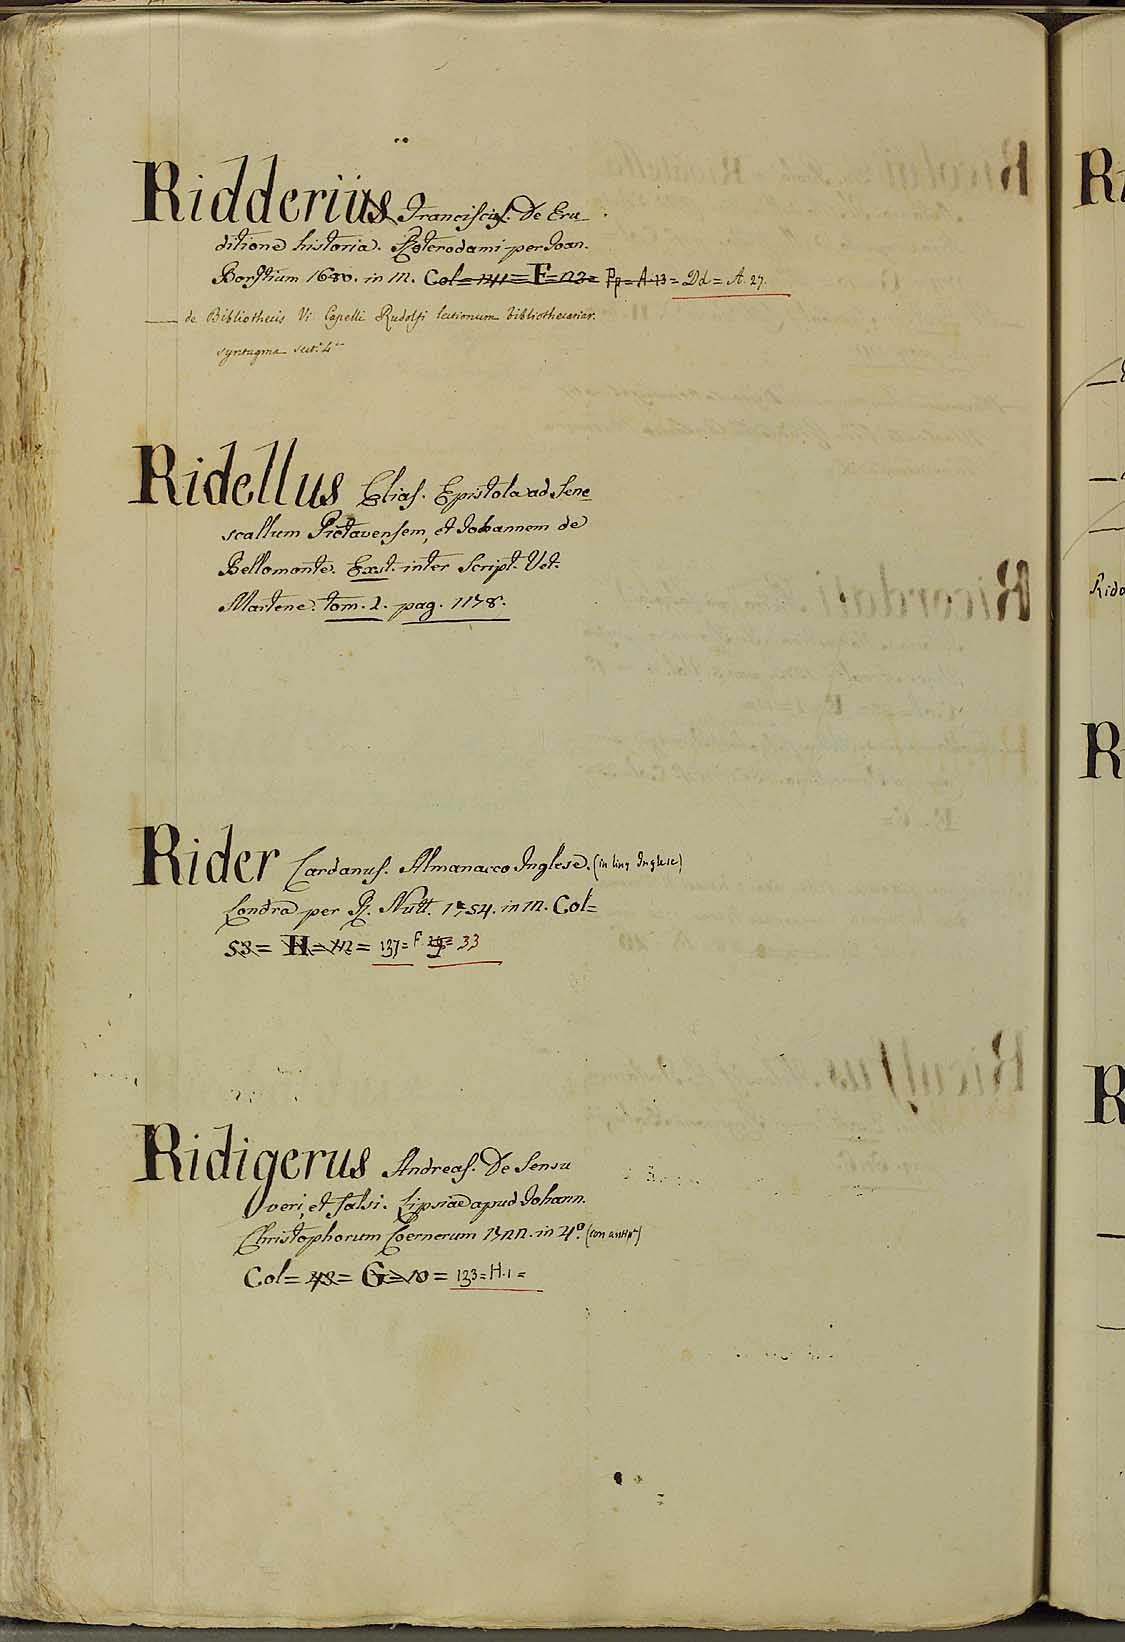 Ridderius Franciscus. De Eru
ditione historia. Roterodami per Joan.
Borstium 1680. in 12. Col= 141= F= 123= Pp= A. 13= Dd= A. 27.
— de Bibliothecis Vi Capelli Rudolfi lectionum bibliothecariar.
syntagma
Ridellus Elias. Epistola ad Sene
scallum Pictavensem, et Johannem de
Bellomonte. Exst. inter Script. Vet.
Martene. tom. 1. pag. 1178.
Rider Cardanus. Almanacco Inglese. (in ling Inglese)
Londra per R. Nutt. 1754. in 12. Col=
53= H= 12= 137= F 33
Ridigerus Andreas. De Sensu
veri, et falsi. Lipsiae apud Johann.
Christophorum Coernerum 1722. in 4º.
Col= 48= G= 10= 133= H. 1=
Ri
Rido
R
R